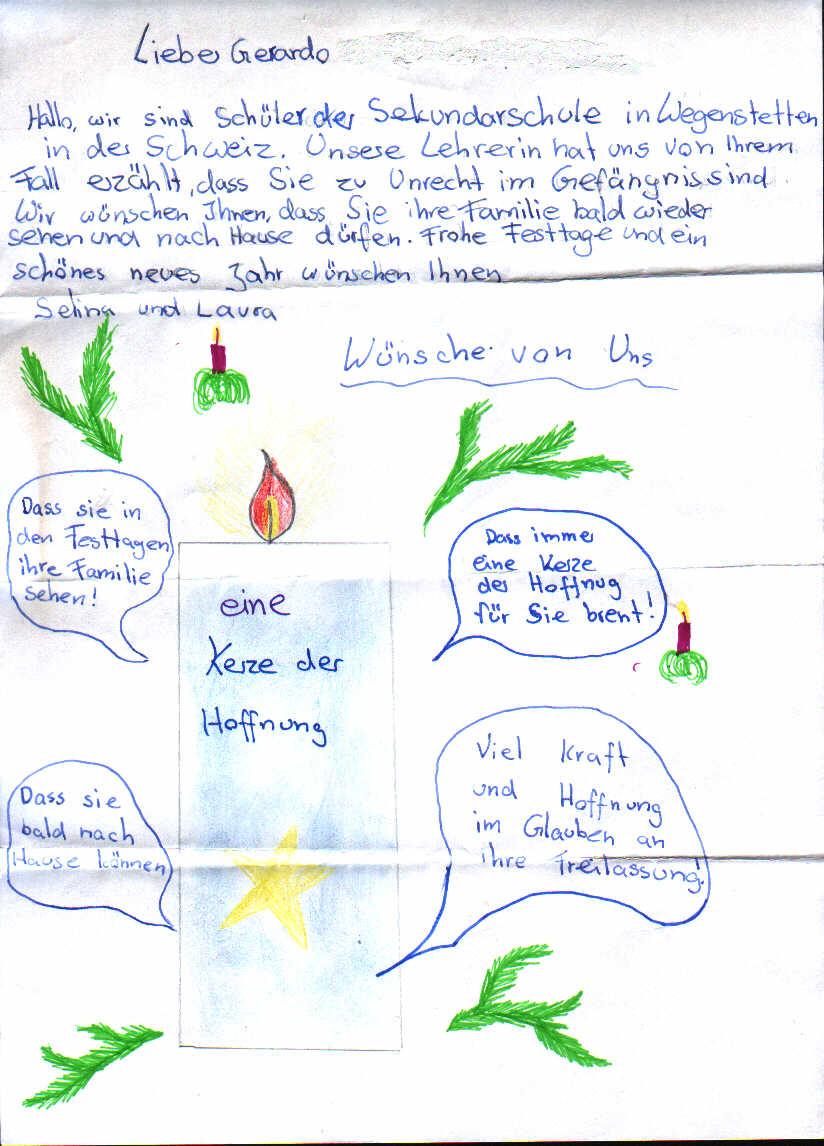 Lieber Gerardo
Hallo, wir sind Schüler der Sekundarschule in Wegenstetten
in der Schweiz. Unsere Lehrerin hat uns von Ihrem
Fall erzählt, dass Sie zu Unrecht im Gefängnis sind.
Wir wünschen Ihnen, dass Sie ihre Familie bald wieder
sehen und nach Hause dürfen. Frohe Festtage und ein
schönes neues Jahr wünschen Ihnen
Selina und Laura
Wünsche von Uns
Dass sie in
den Festtagen
ihre Familie
sehen!
Dass immer
eine Kerze
der Hoffnug
für Sie brent!
eine
Kerze der
Hoffnung
Dass sie
bald nach
Hause können
Viel Kraft
und Hoffnung
im Glauben an
ihre Freilassung!